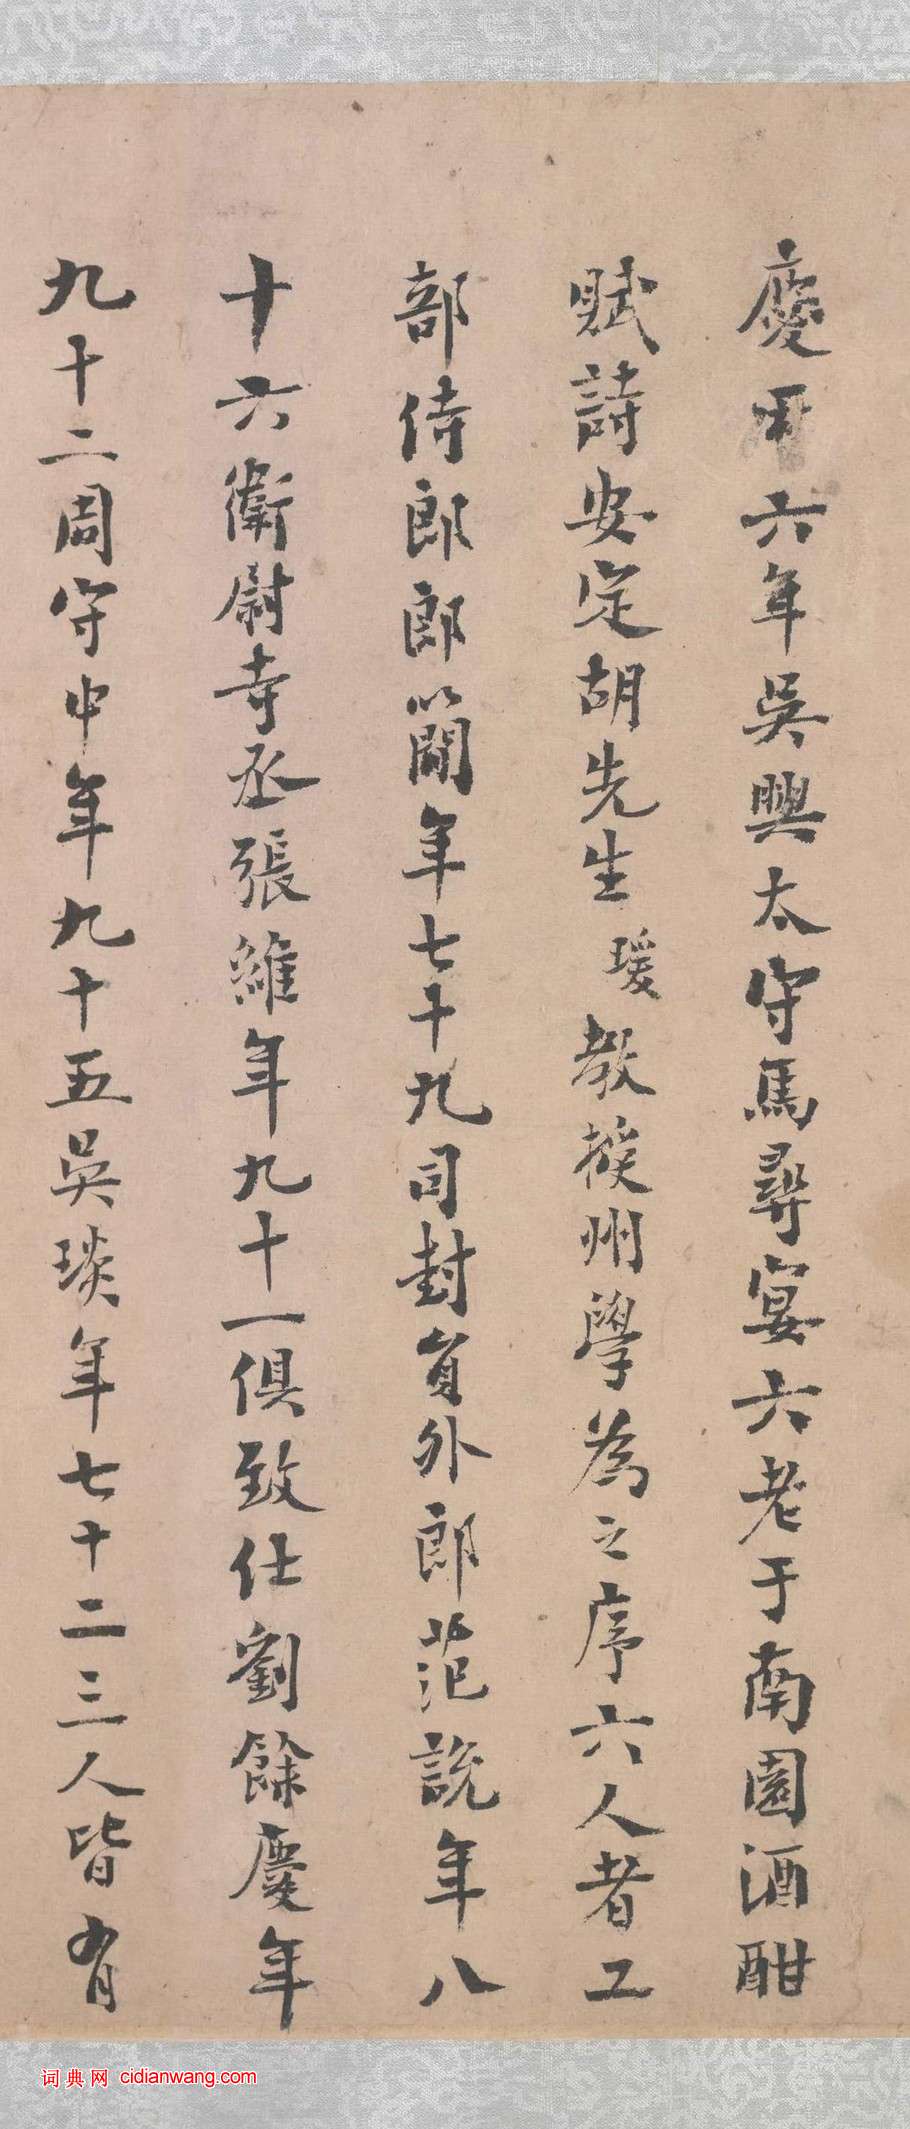 慶曆六年吳興太守馬尋宴六老于南園酒酣
賦詩安定胡先生瑗教授州學為之序六人者工
部侍郎郎簡年七十九司封員外郎范說年八
十六衛尉寺丞張維年九十一俱致仕劉餘慶年
九十二周守中年九十五吳琰年七十二三人皆有
词典网 cidianwang.com